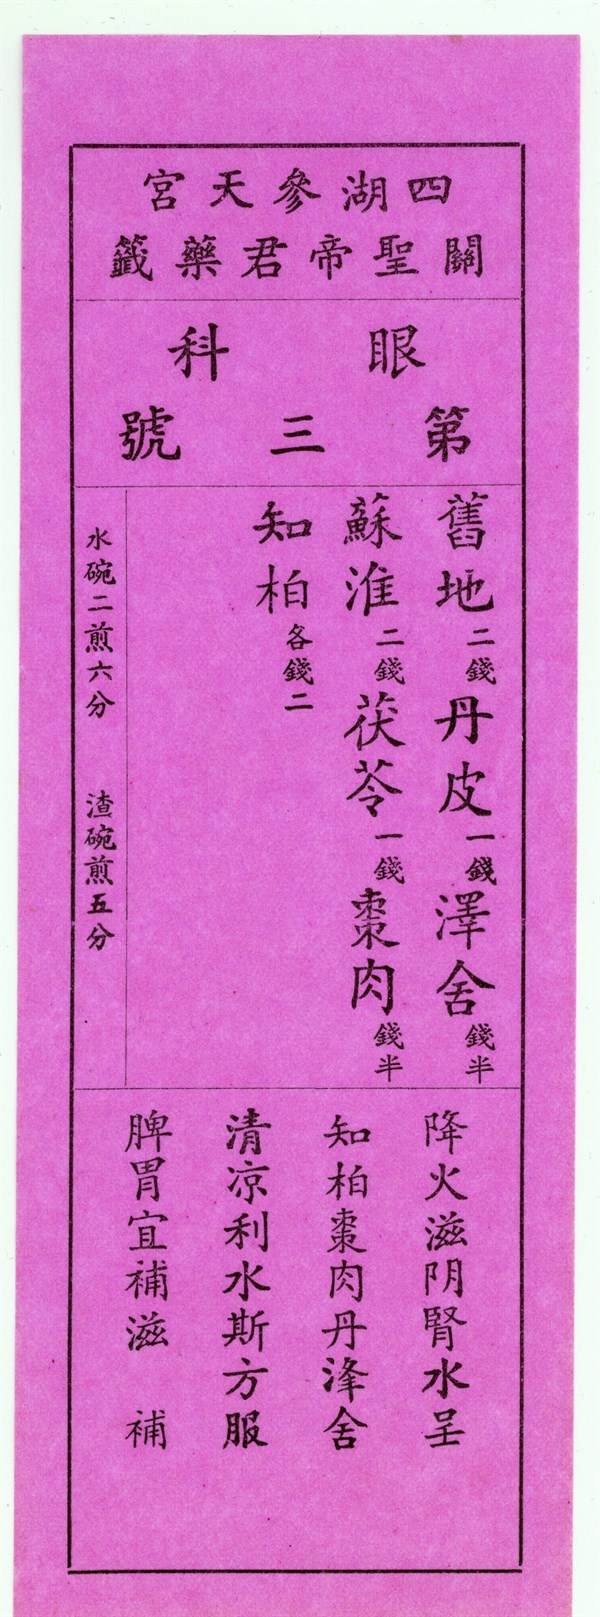 四湖參天宮
關聖帝君藥籤
眼科
第三號
舊地二錢丹皮一錢澤舍錢半
蘇淮二錢茯苓一錢棗肉錢半
知柏各錢二
水碗二煎六分 渣碗煎五分
降火滋阴腎水呈
知柏棗肉丹浲舍
清凉利水斯方服
脾胃宜補滋 補